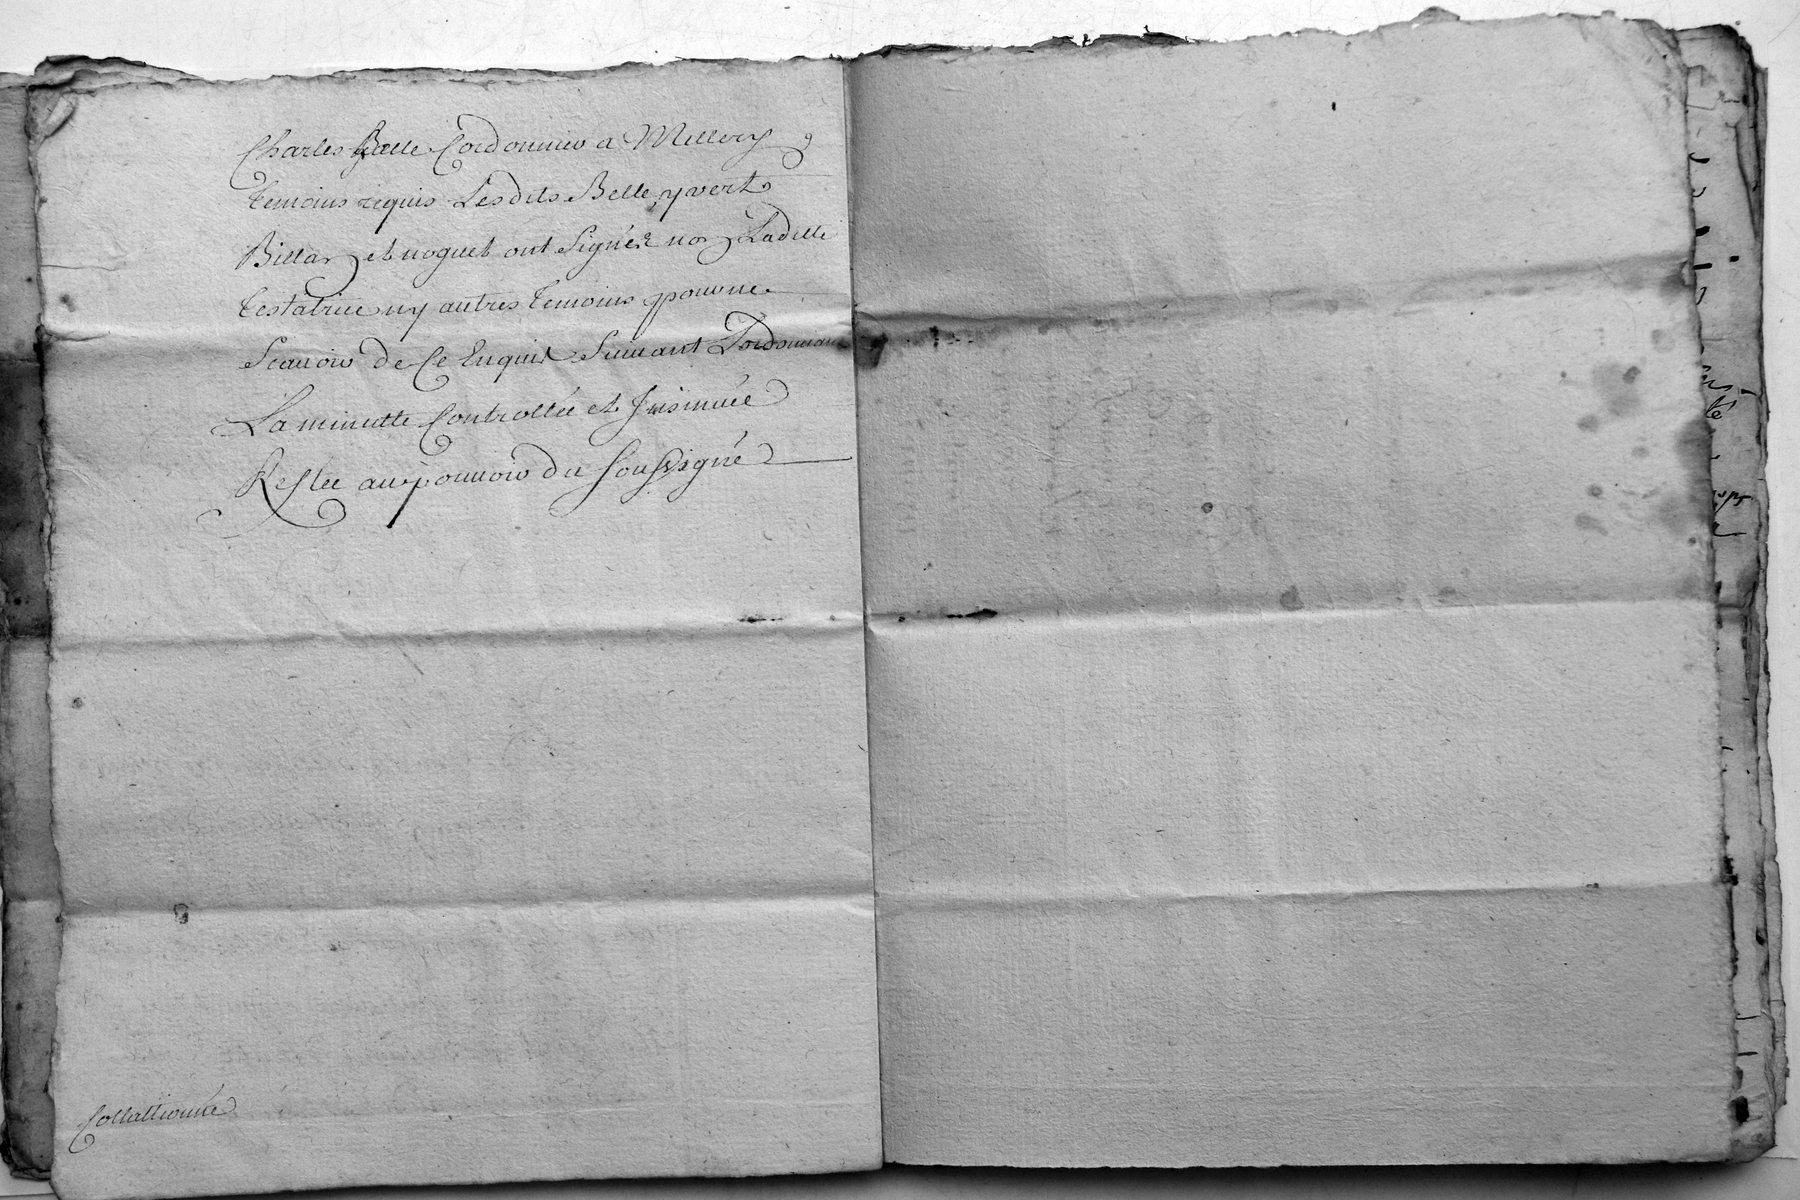 Charles Belle Cordonnier a Millery
temoins requis Lesdits Belle, yvert
Billar et noguet ont signé non Ladille
testatrice ny autres temoins pour ne
Scavoir de Ce Enquis Suivant Lordonnan
La minutte Controllée et Insinuée
Restée au pouvoir du Soussigné
Collationnée